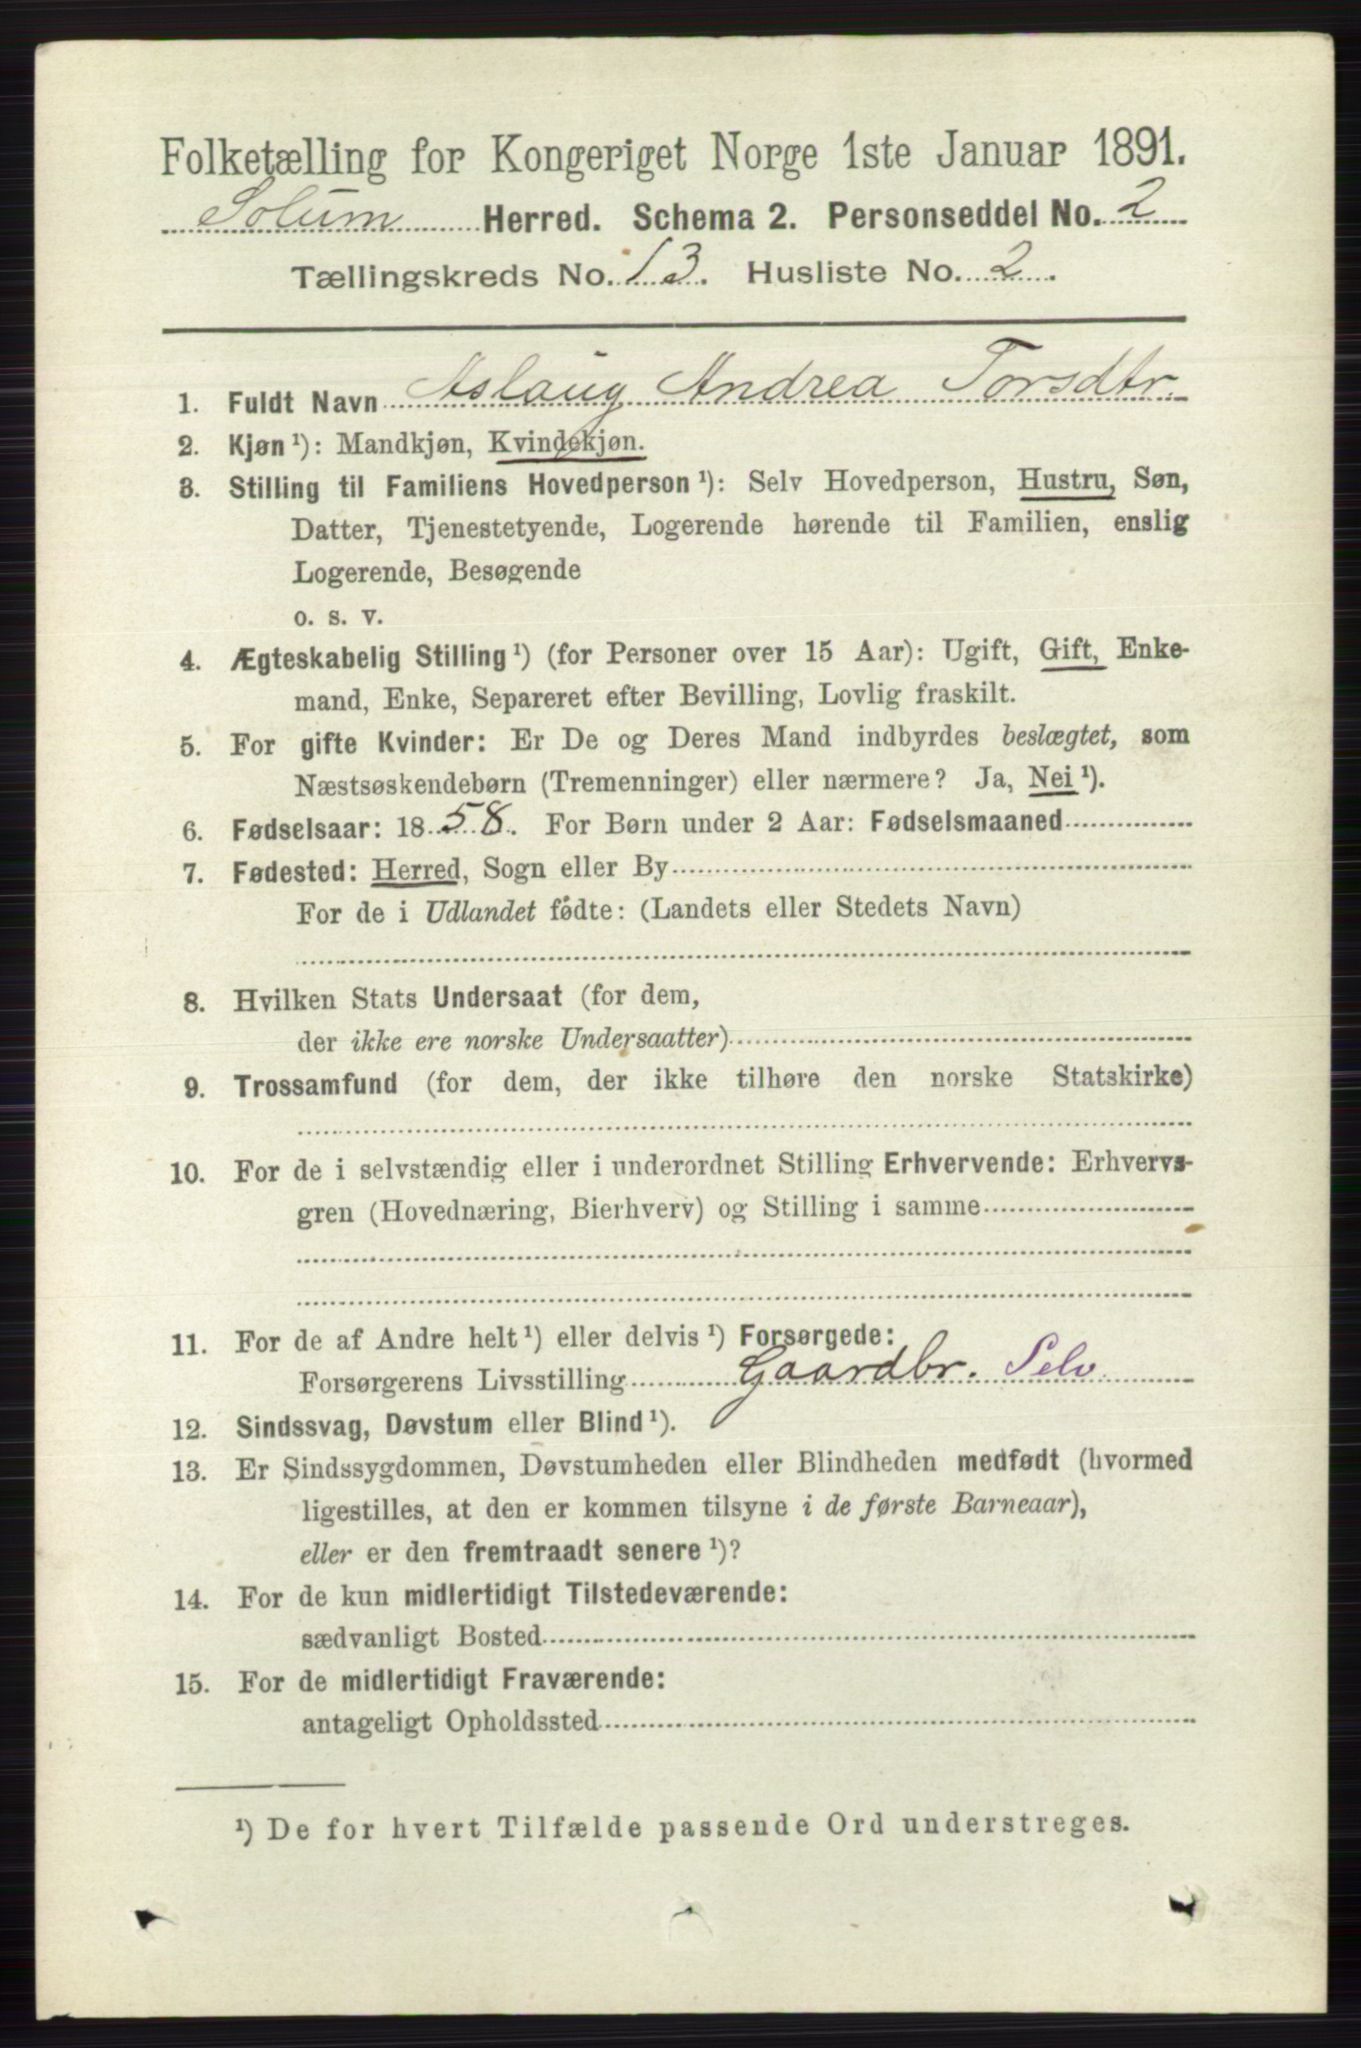 Folketælling for Kongeriget Norge 1ste Januar 1891.
Solum Herred. Schema 2. Personseddel No. 2
Tællingskreds No. 13. Husliste No. 2.
1. Fuldt Navn Aslaug Andrea Torsdtr.
2. Kjøn ¹): Mandkjøn, Kvindekjøn.
3. Stilling til Familiens Hovedperson ¹): Selv Hovedperson, Hustru, Søn,
Datter, Tjenestetyende, Logerende hørende til Familien, enslig
Logerende, Besøgende
o. s. v.
4. Ægteskabelig Stilling ¹) (for Personer over 15 Aar): Ugift, Gift, Enke-
mand, Enke, Separeret efter Bevilling, Lovlig fraskilt.
5. For gifte Kvinder: Er De og Deres Mand indbyrdes beslægtet, som
Næstsøskendebørn (Tremenninger) eller nærmere? Ja, Nei ¹).
6. Fødselsaar: 1858. For Børn under 2 Aar: Fødselsmaaned
7. Fødested: Herred, Sogn eller By
For de i Udlandet fødte: (Landets eller Stedets Navn)
8. Hvilken Stats Undersaat (for dem,
der ikke ere norske Undersaatter)
9. Trossamfund (for dem, der ikke tilhøre den norske Statskirke)
10. For de i selvstændig eller i underordnet Stilling Erhvervende: Erhvervs-
gren (Hovednæring, Bierhverv) og Stilling i samme
11. For de af Andre helt ¹) eller delvis ¹) Forsørgede:
Forsørgerens Livsstilling Gaardbr. Selv.
12. Sindssvag, Døvstum eller Blind ¹).
13. Er Sindssygdommen, Døvstumheden eller Blindheden medfødt (hvormed
ligestilles, at den er kommen tilsyne i de første Barneaar),
eller er den fremtraadt senere ¹)?
14. For de kun midlertidigt Tilstedeværende:
sædvanligt Bosted
15. For de midlertidigt Fraværende:
antageligt Opholdssted
¹) De for hvert Tilfælde passende Ord understreges.